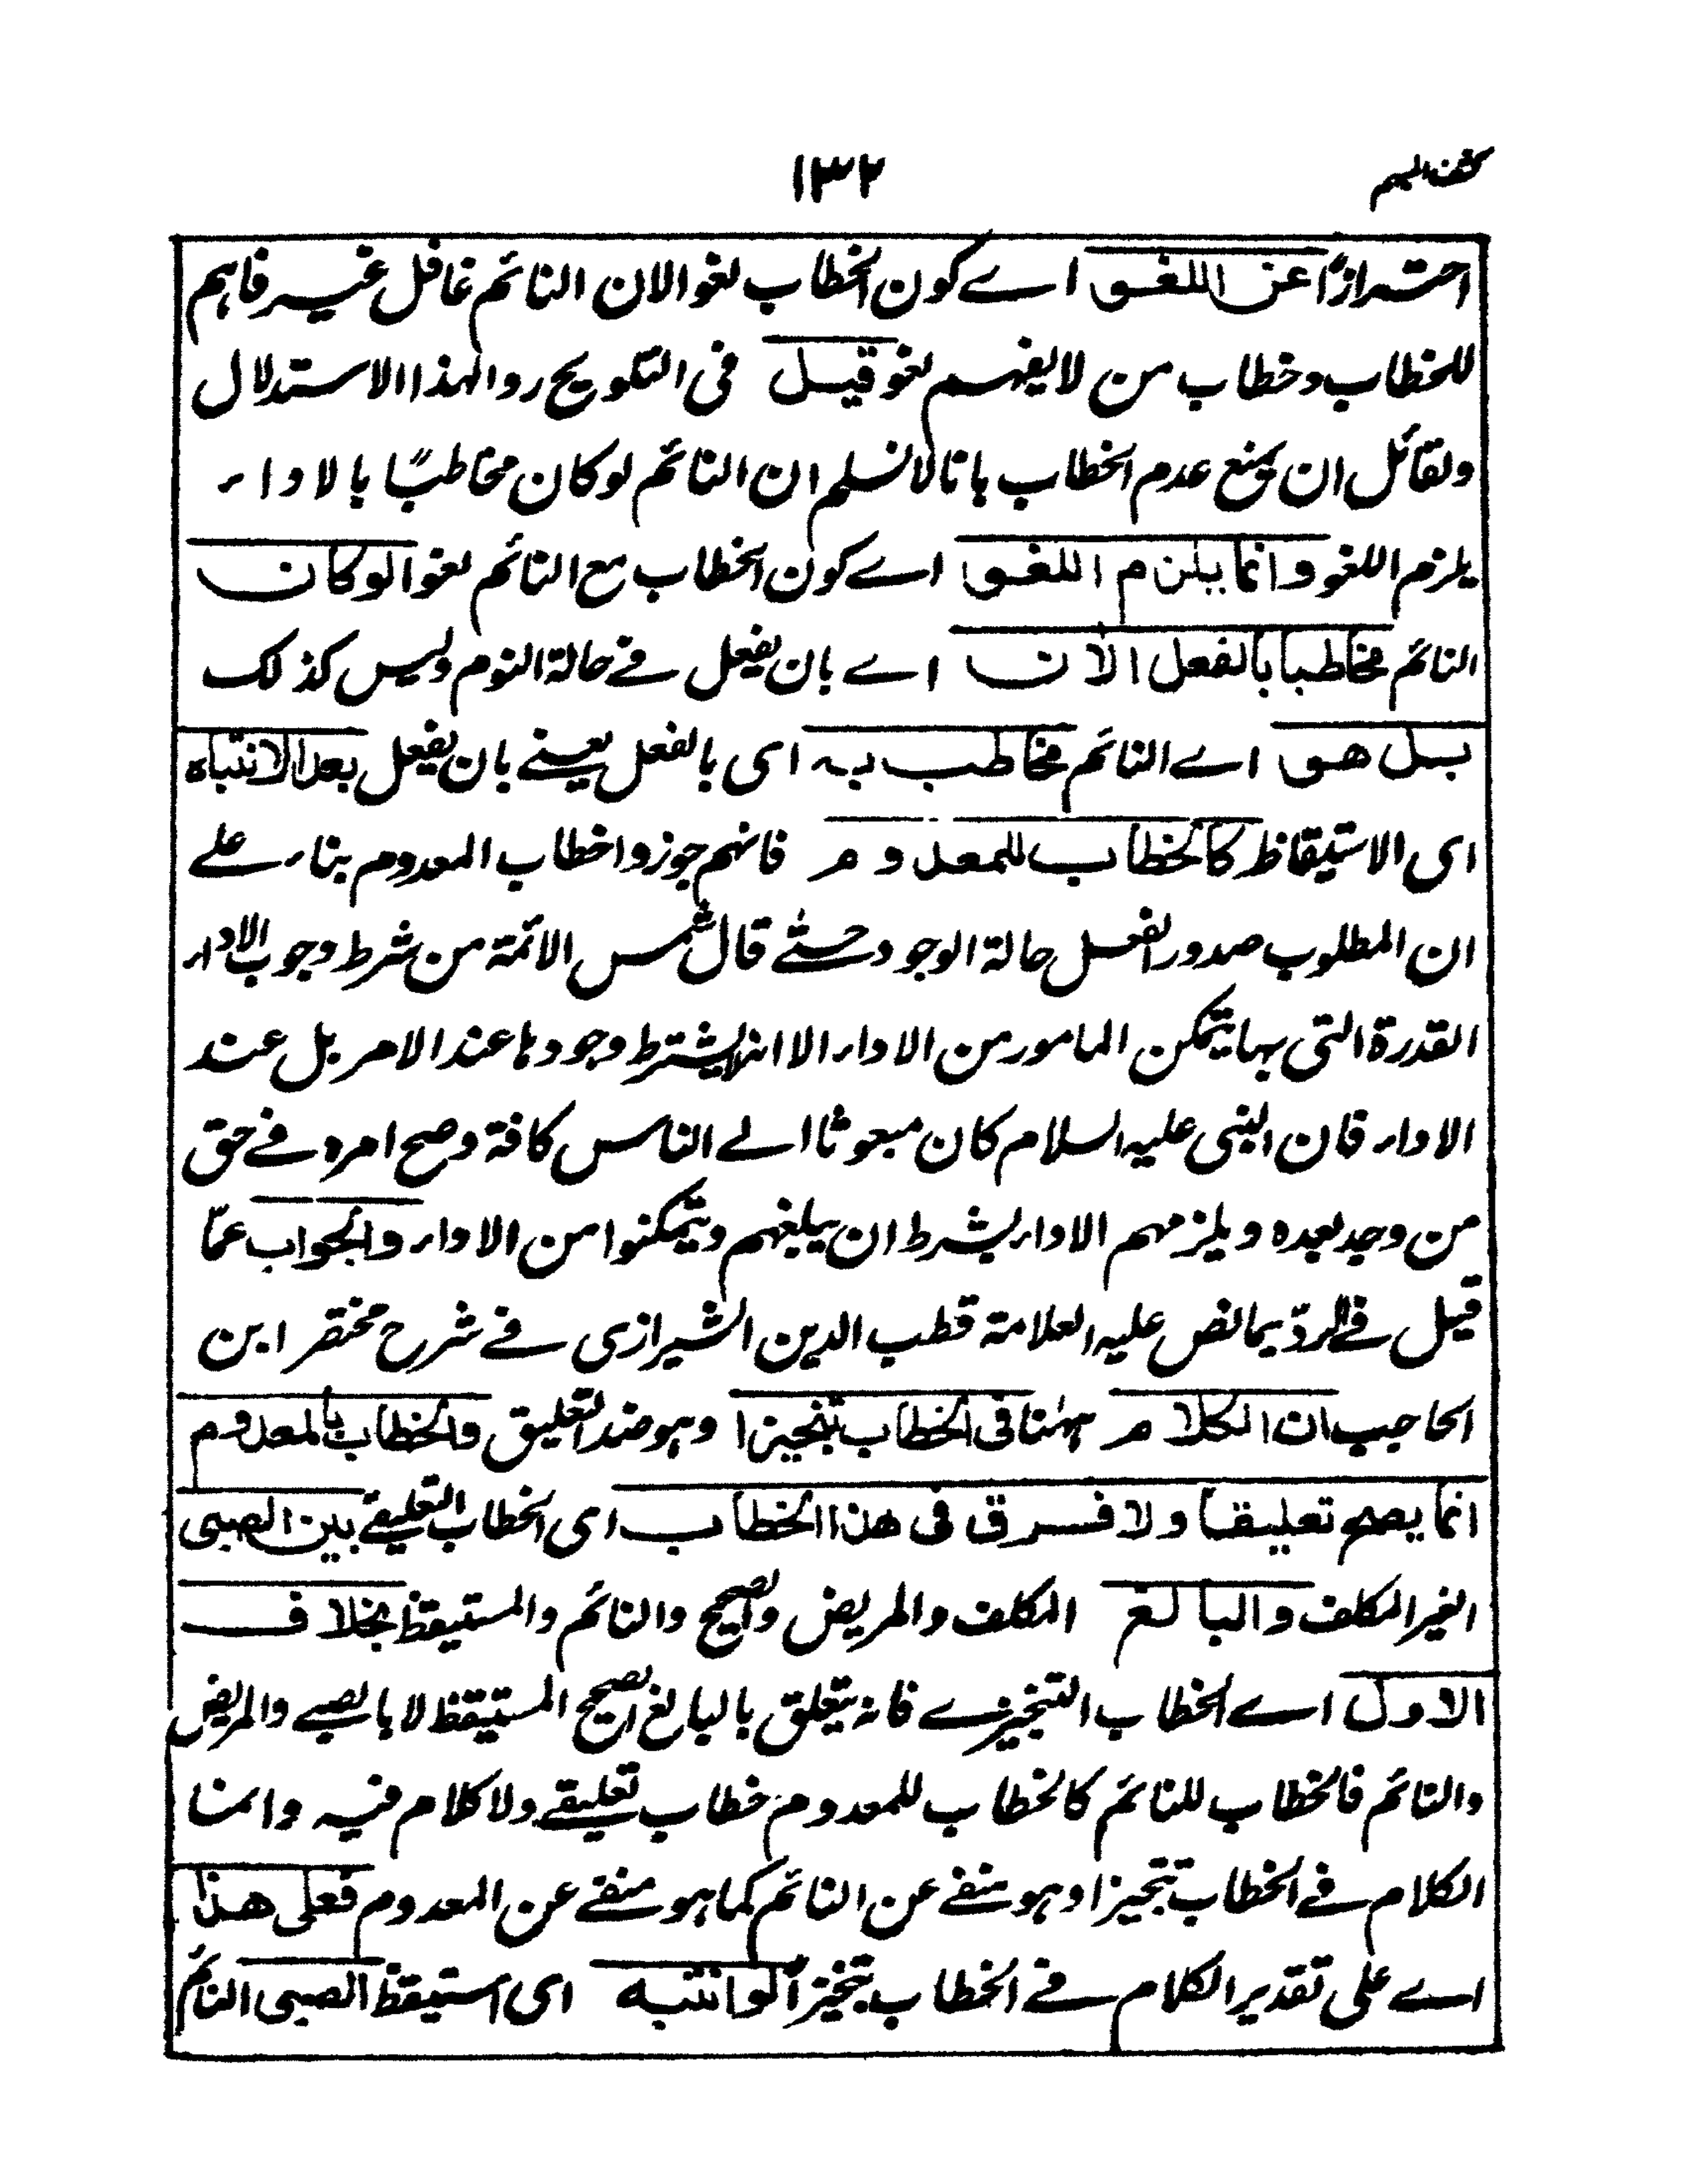 كشف المبهم
١٣٢
احترازًا عن اللغو اے كون الخطاب لغوا لان النائم غافل غير فاہم
للخطاب وخطاب من لا يفہم لغو قيل فى التلويح ردا لہذا الاستدلال
ولقائل ان يمنع عدم الخطاب بانا لا نسلم ان النائم لو كان مخاطبًا بالاداء
يلزم اللغو وانما يلزم اللغو اے كون الخطاب مع النائم لغوا لو كان
النائم مخاطبا بالفعل الآن اے بان يفعل فے حالة النوم وليس كذلك
بل هو اے النائم مخاطب به اى بالفعل يعنے بان يفعل بعد الانتباه
اى الاستيقاظ كالخطاب للمعدوم فانہم جوزوا خطاب المعدوم بناء علے
ان المطلوب صدور الفعل حالة الوجود حتے قال شمس الائمة من شرط وجوب الاداء
القدرة التى بہا يتمكن المامور من الاداء الا انہ لا يشترط وجودہا عند الامر بل عند
الاداء فان النبى عليہ السلام كان مبعوثا الے الناس كافة وصح امره فے حق
من وجد بعده ويلزمہم الاداء بشرط ان يبلغہم ويتمكنوا من الاداء والجواب عمّا
قيل فے الردّ بما نص عليہ العلامة قطب الدين الشيرازى فے شرح مختصر ابن
الحاجب ان الكلام ہہنا فى الخطاب تنجيزا وہو ضد التعليق والخطاب بالمعدوم
انما يصح تعليقا ولا فرق فى هذا الخطاب اى الخطاب التعليقے بين الصبى
الغير المكلف والبالغ المكلف والمريض والصحيح والنائم والمستيقظ بخلاف
الاول اے الخطاب التنجيزے فانہ يتعلق بالبالغ الصحيح المستيقظ لا بالصبے والمريض
والنائم فالخطاب للنائم كالخطاب للمعدوم خطاب تعليقے ولا كلام فيہ وانما
الكلام فے الخطاب تنجيزا وہو منفے عن النائم كما ہو منفے عن المعدوم فعلى هذا
اے على تقدير الكلام فے الخطاب تنجيزا لو انتبه اى استيقظ الصبى النائم